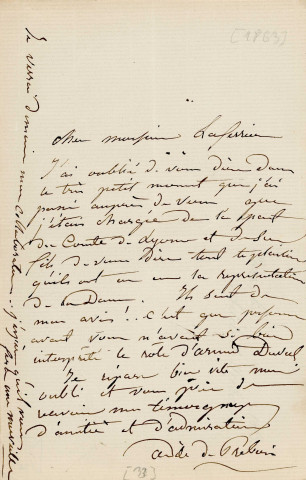 [1863]
cher monsieur Laferrière
J'ai oublié de vous dire dans
le très petit moment que j'ai
passé auprès de vous que
j'étais chargée de la part
du Comte de et de son
fils de vous dire tout le plaisir
qu'ils ont eu à la représentation
de la Dame. Ils sont de
mon avis!.. c'est que personne
avant vous n'avait si bien
interprété le role d'armand Duval
Je répare bien vite mon
oubli et vous prie de
recevoir mes témoignages
d'amitié et d'admiration
de
Je verrai demain mon collaborateur. j'espère qu'il
[33]